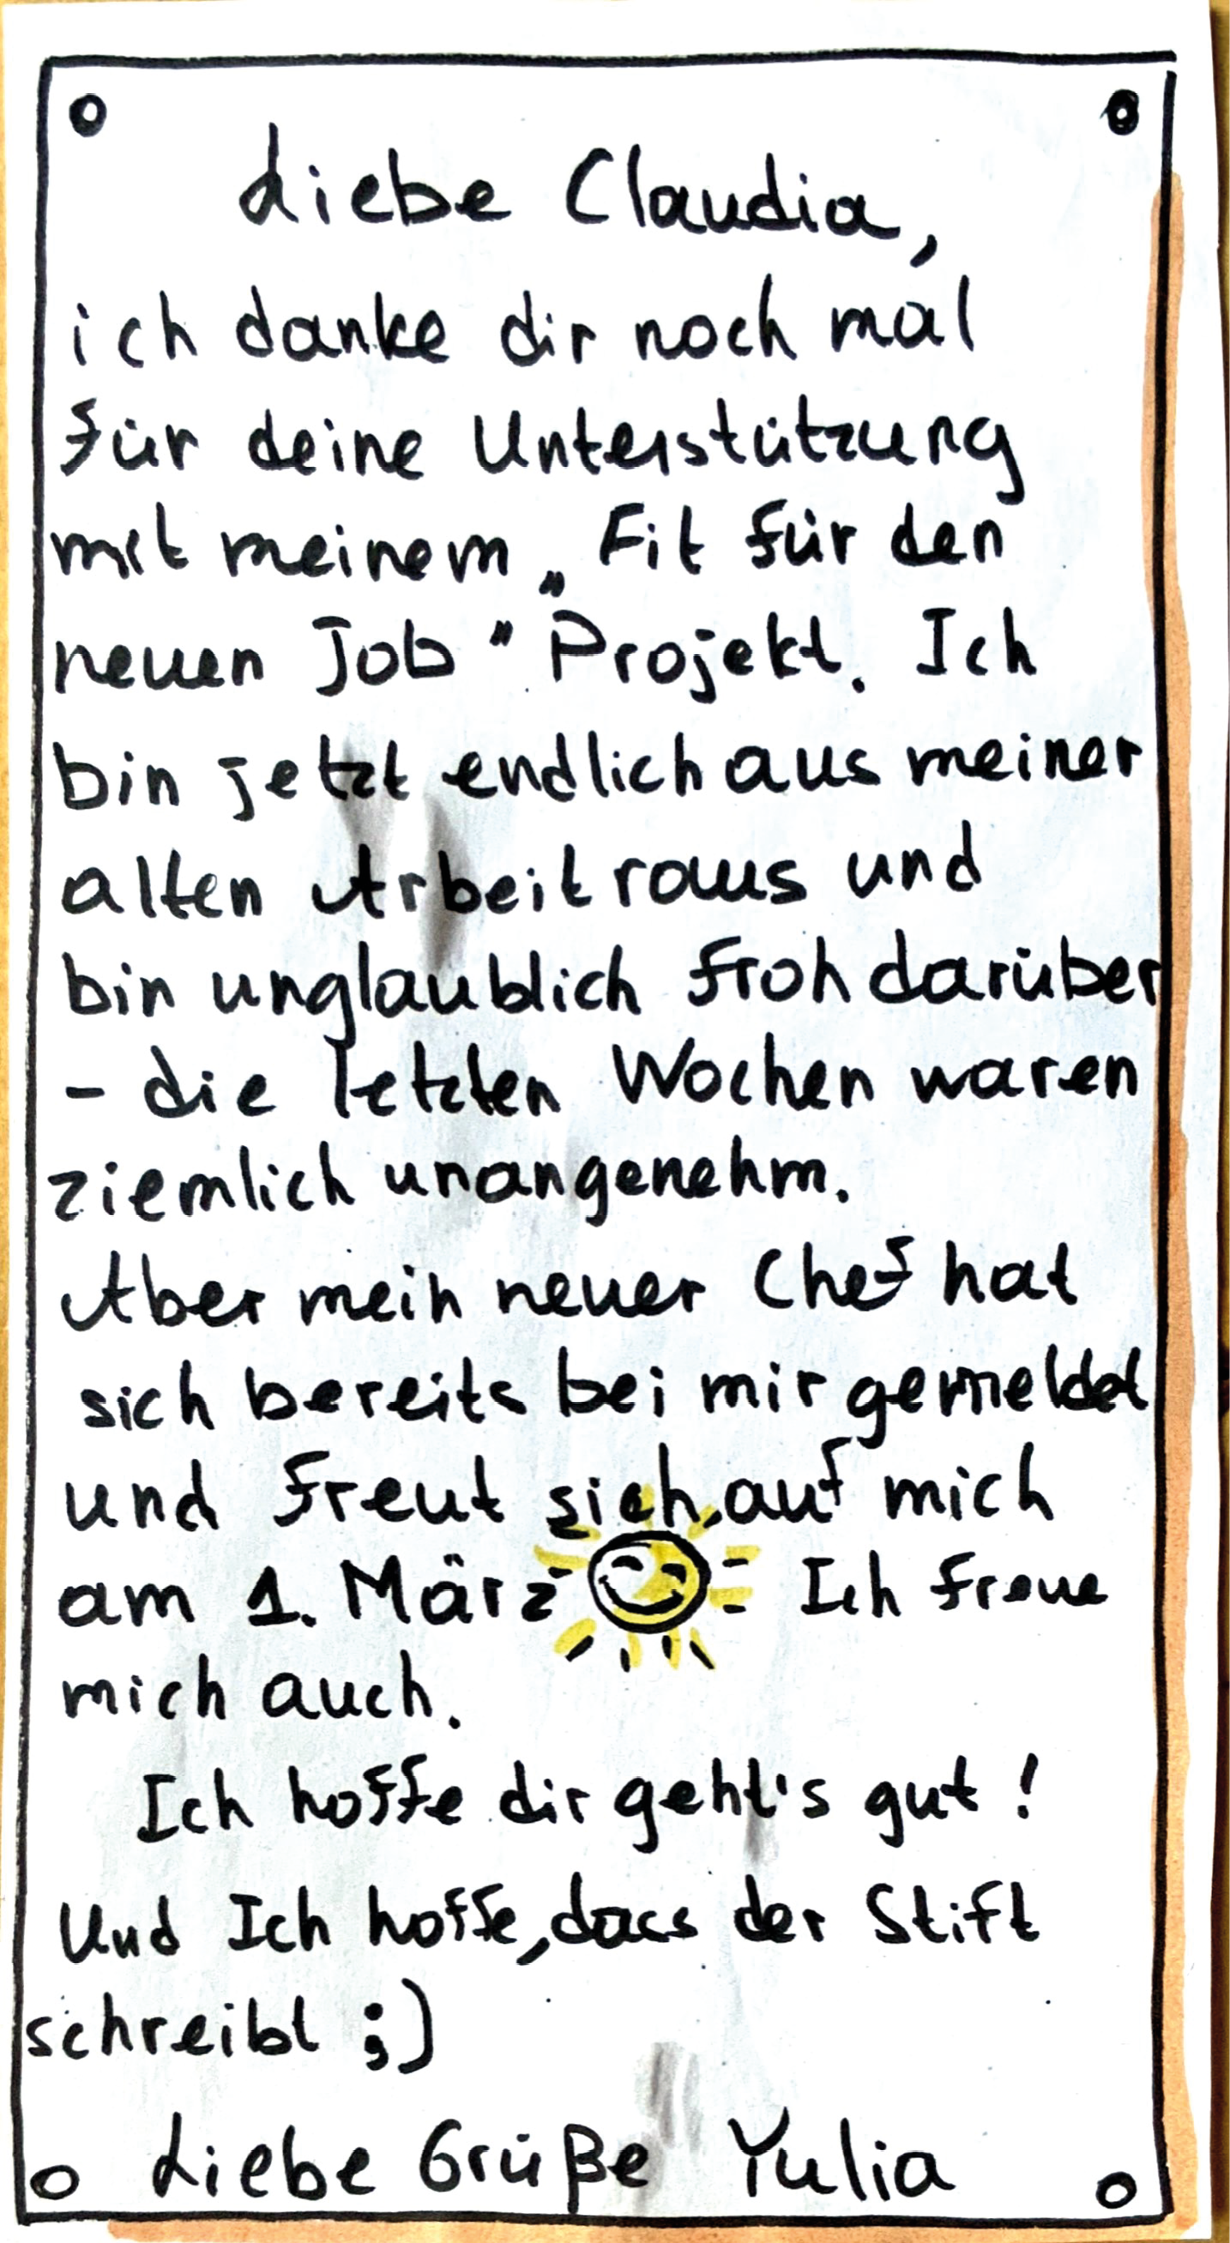 Liebe Claudia,
ich danke dir noch mal
für deine Unterstützung
mit meinem „Fit für den
neuen Job" Projekt. Ich
bin jetzt endlich aus meiner
alten Arbeit raus und
bin unglaublich froh darüber
- die letzten Wochen waren
ziemlich unangenehm.
Aber mein neuer Chef hat
sich bereits bei mir gemeldet
und freut sich, auf mich
am 1. März Ich freue
mich auch.
Ich hoffe dir geht's gut!
Und Ich hoffe, dass der Stift
schreibt ;)
Liebe Grüße Yulia